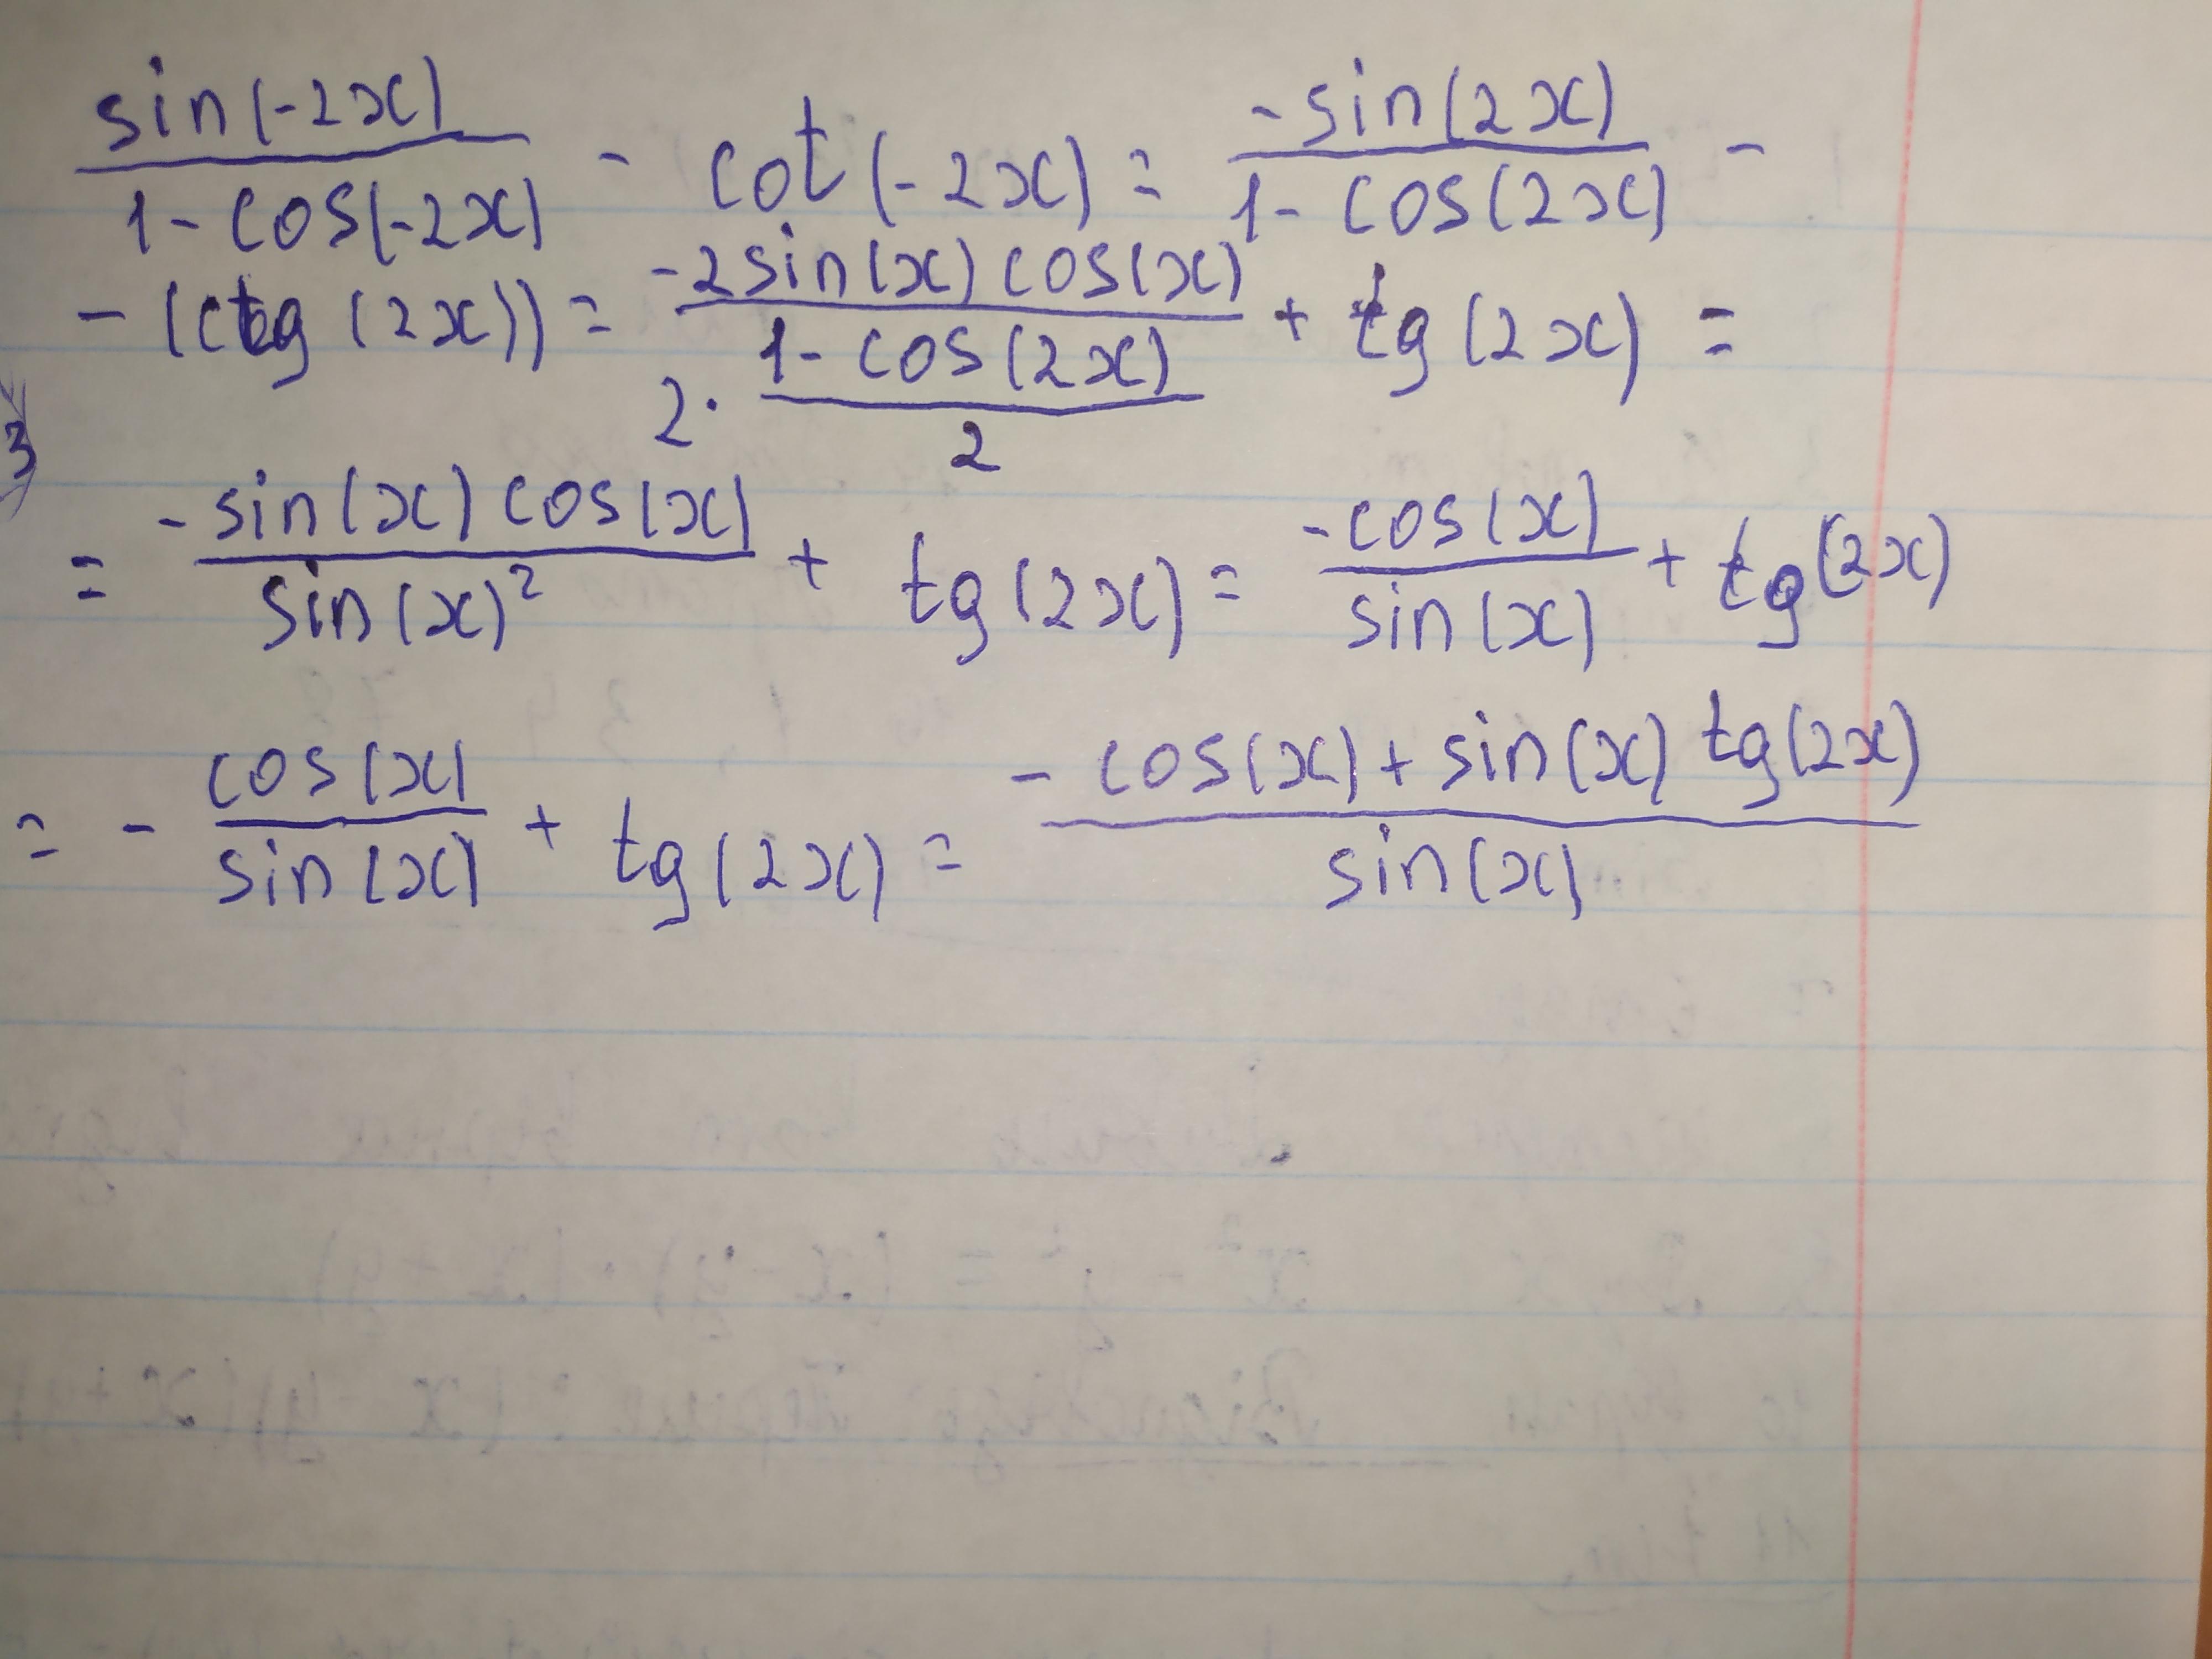 sin(-2x)/1-cos(-2x) - cot(-2x) = -sin(2x)/1-cos(2x) -
-(ctg(2x)) = -2sin(x)cos(x)/2·1-cos(2x)/2 + tg(2x) =
3
= -sin(x)cos(x)/sin(x)² + tg(2x) = -cos(x)/sin(x) + tg(2x)
= - cos(x)/sin(x) + tg(2x) = -cos(x)+sin(x) tg(2x)/sin(x)